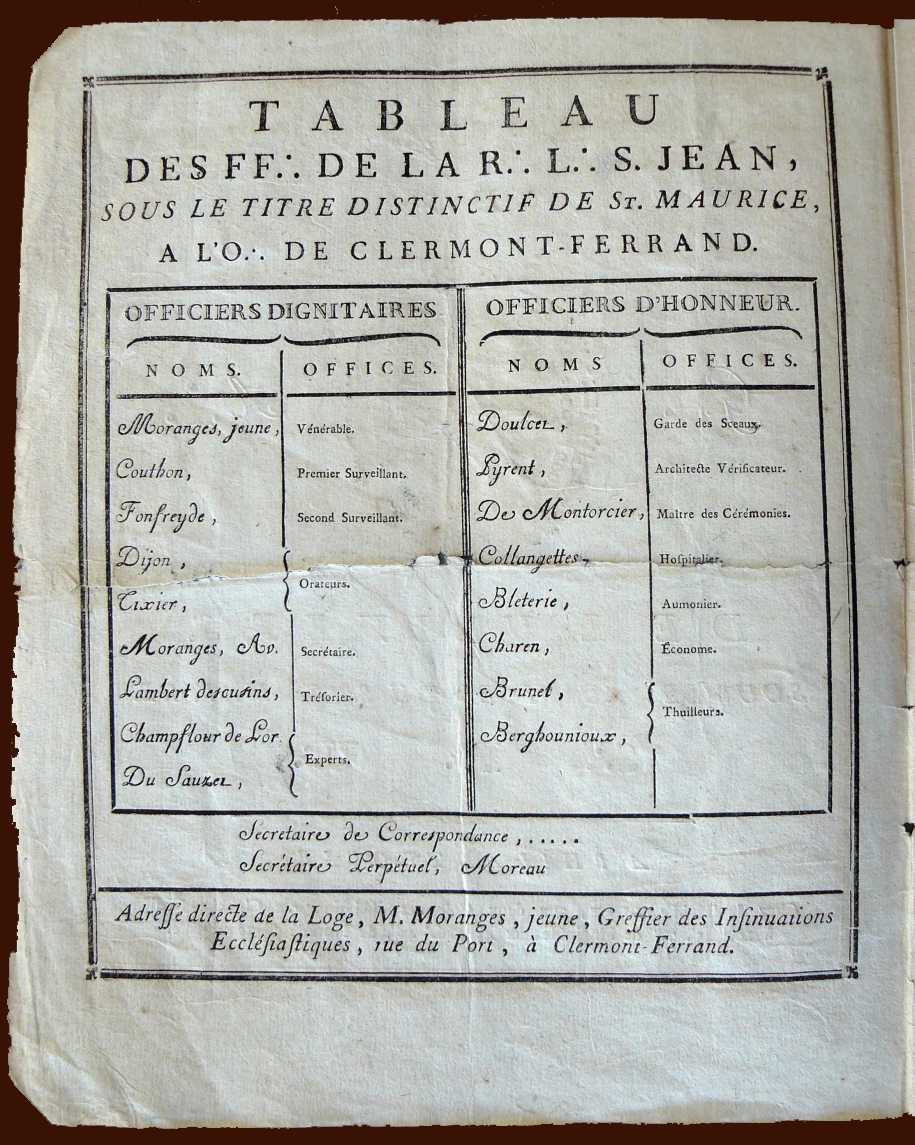 TABLEAU
DES FF∴ DE LA R∴ L∴ S. JEAN,
SOUS LE TITRE DISTINCTIF DE ST. MAURICE,
A L'O∴ DE CLERMONT-FERRAND.
OFFICIERS DIGNITAIRES
NOMS. OFFICES.
Moranges, jeune, Vénérable.
Couthon, Premier Surveillant.
Fonfreyde, Second Surveillant.
Dijon,
Orateurs.
Tixier,
Moranges, Av. Secrétaire.
Lambert descusins, Tréſorier.
Champflour de Lor
Experts.
Du Sauzet,
OFFICIERS D'HONNEUR.
NOMS OFFICES.
Doulcet, Garde des Sceaux.
Pyrent, Architecte Vérificateur.
De Montorcier, Maître des Cérémonies.
Collangettes, Hoſpitalier.
Bleterie, Aumonier.
Charen, Économe.
Brunel,
Thuilleurs.
Berghounioux,
Secretaire de Correspondance, .....
Secrétaire Perpétuel, Moreau
Adreſſe directe de la Loge, M. Moranges, jeune, Greffier des Inſinuations
Eccléſiaſtiques, rue du Port, à Clermont-Ferrand.